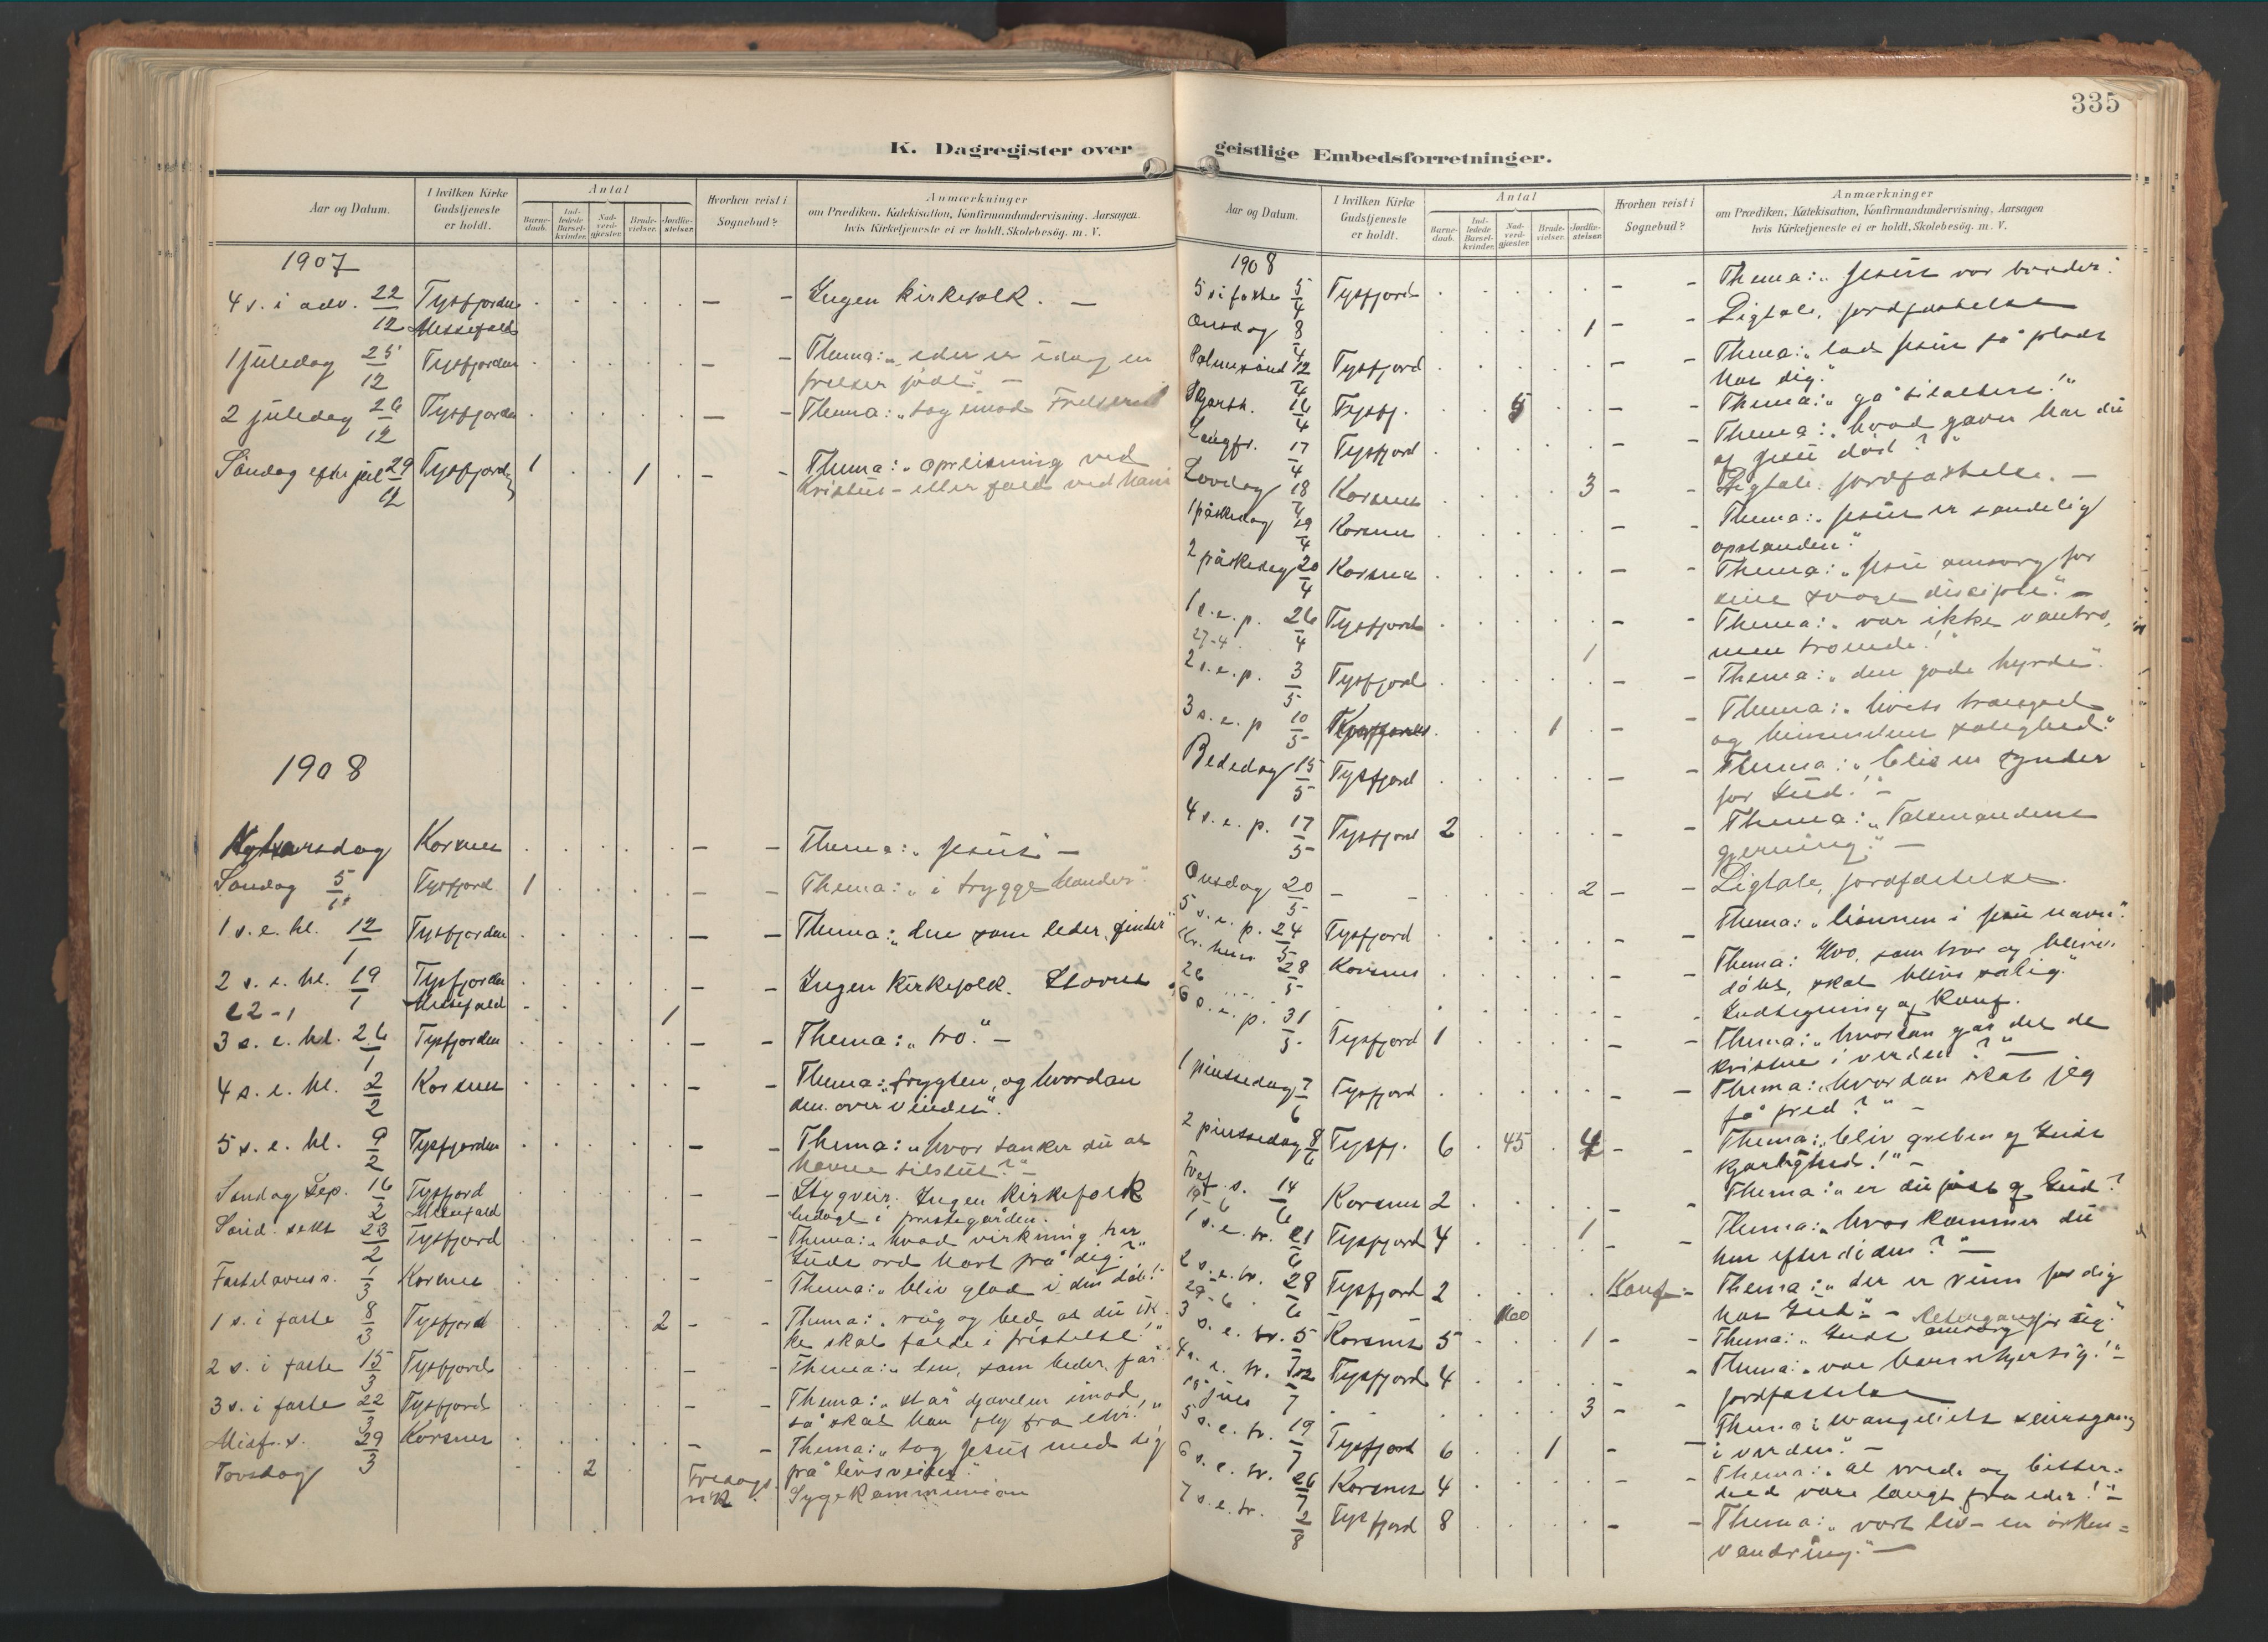 335
K. Dagregister over geistlige Embedsforretninger.
Aar og Datum.
I hvilken Kirke Gudstjeneste er holdt.
Antal
Barne-daab.
Ind-ledede Barsel-kvinder.
Nad-verd-gjæster.
Brude-vielser.
Jordfæ-stelser.
Hvorhen reist i Sognebud?
Anmærkninger
om Prædiken, Katekisation, Konfirmandundervisning, Aarsagen
hvis Kirketjeneste ei er holdt, Skolebesög, m. V.
1907
4 s. i adv. 22/12 Tysfjorden . . . . . — — Ingen kirkefolk. —
Messefald
1 juledag 25/12 Tysfjorden . . . . . — — Thema: „eder er idag en
frelser født". —
2 juledag 26/12 Tysfjorden . . . . . — — Thema: „tag imod Frelseren
Søndag efter jul 29/12 Tysfjord 1 . . 1 . — — Thema: „opreisning ved
Kristus – eller fald ved ham
1908
Nytaarsdag Korsnes . . . . . — — Thema: „Jesus" —
Søndag 5/1 Tysfjord 1 . . . . — — Thema: „i trygge hænder".
1 s. e. hl. 12/1 Tysfjorden . . . . . — — Thema: „den som leder, finder"
2 s. e. hl. 19/1 Tysfjorden . . . . . — — Ingen kirkefolk. Storm
Messefald
22-1 1
3 s. e. hl. 26/1 Tysfjorden . . . . . — — Thema: „tro." —
4 s. e. hl. 2/2 Korsnes . . . . . — — Thema: „frygten, og hvordan
den overvindes".
5 s. e. hl. 9/2 Tysfjorden . . . . . — — Thema: „hvor tænker du at
havne tilslut?" —
Søndag Sep. 16/2 Tysfjord . . . . . — — Stygveir. Ingen kirkefolk
Messefald
i prestegården.
Sønd. seks 23/2 Tysfjord . . . . . — — Thema: „hvad virkning har
Guds ord havt på dig?"
Fastelavns s. 1/3 Korsnes . . . . . — — Thema: „bliv glad i din dåb!"
1 s. i faste 8/3 Tysfjord . . . . 2 — — Thema: „våg og bed at du ik-
ke skal falde i fristelse!"
2 s. i faste 15/3 Tysfjord . . . . . — — Thema: „den, som beder, får."
3 s. i faste 22/3 Tysfjord . . . . . — — Thema: „stå djævelen imod,
så skal han fly fra eder!"
Midf. s. 29/3 Korsnes . . . . . — — Thema: „tag Jesus med dig
på livsveien".
Torsdag . . 2 . . Sygekommunion
1908
5 s i faste 5/4 Tysfjord . . . . . — — Thema: „Jesus vor broder!
Onsdag 8/4 . . . . 1 — — Ligtale, jordfæstelse
Palmesønd 12/4 Tysfjord . . . . . — — Thema: „lad Jesus få plads
hos dig."
Skjærth. 16/4 Tysfj. . . 5 . . — — Thema: „gå til alters!"
Langfr. 17/4 Tysfjord . . . . . — — Thema: „hvad gavn har du
af Jesu død?"
Lovdag 18/4 Korsnes . . . . 3 — — Ligtale, jordfæstelse. —
1 påskedag 19/4 Korsnes . . . . . — — Thema: „Jesus er sandelig
opstanden."
2 påskedag 20/4 Korsnes . . . . . — — Thema: „Jesu omsorg for
sine svage disciple". —
1 s. e. p. 26/4 Tysfjord . . . . . — — Thema: „vær ikke vantro,
men troende!"
27-4 1
2 s. e. p. 3/5 Tysfjord . . . . . — — Thema: „den gode hyrde".
3 s. e. p 10/5 . . . 1 . — — Thema: „livets trængsel
og himmelens salighed."
Bededag 15/5 Tysfjord . . . . . — — Thema: „bliv en synder
for Gud!" —
4 s. e. p. 17/5 Tysfjord 2 . . . . — — Thema: „Talsmandens
gjerning." —
Onsdag 20/5 — — 2 — — Ligtale, jordfæstelse.
5 s. e. p. 24/5 Tysfjord . . . . . — — Thema: „bønnen i Jesu navn".
Kr. him 28/5 Korsnes . . . . . — — Thema: Hvo, som tror og bliver
døbt, skal blive salig."
26 . . . . . — — Indtegning af konf.
6 s. e. p. 31/5 Tysfjord 1 . . . . — — Thema: „hvordan går det de
kristne i verden?" —
1 pinsedag 7/6 Tysfjord . . . . . — — Thema: „hvordan skal jeg
få fred?" —
2 pinsedag 8/6 Tysfj. 6 . 45 . 4 — — Thema: „bliv greben af Guds
kjærlighed!" —
Tref. s. 14/6 Korsnes 2 . . . . — — Thema: „er du født af Gud?
19/6 1
1 s. e. tr. 21/6 Tysfjord 4 . . . . — — Thema: „hvor kommer du
hen efter døden?" —
2 s. e. tr. 28/6 Tysfjord 2 . . . . Konf. — Thema: „der er rum for dig
hos Gud". —
29-6 100
3 s. e. tr. 5/7 Korsnes 5 . . . 1 — — Thema: „Guds omsorg for dig".
4 s. e. tr. 12/7 Tysfjord 4 . . . . — — Thema: „vær barmhjertig!" —
7 . . . . 3 — — jordfæstelse
5 s. e. tr. 19/7 Tysfjord 6 . . 1 . — — Thema: evangeliets seiersgang
i verden." —
6 s. e. tr. 26/7 Korsnes 4 . . . . — — Thema: „al vrede og bitter-
hed være langt fra eder!" —
7 s. e. tr. 2/8 Tysfjord 8 . . . . — — Thema: „vort liv – en ørken=
vandring." —